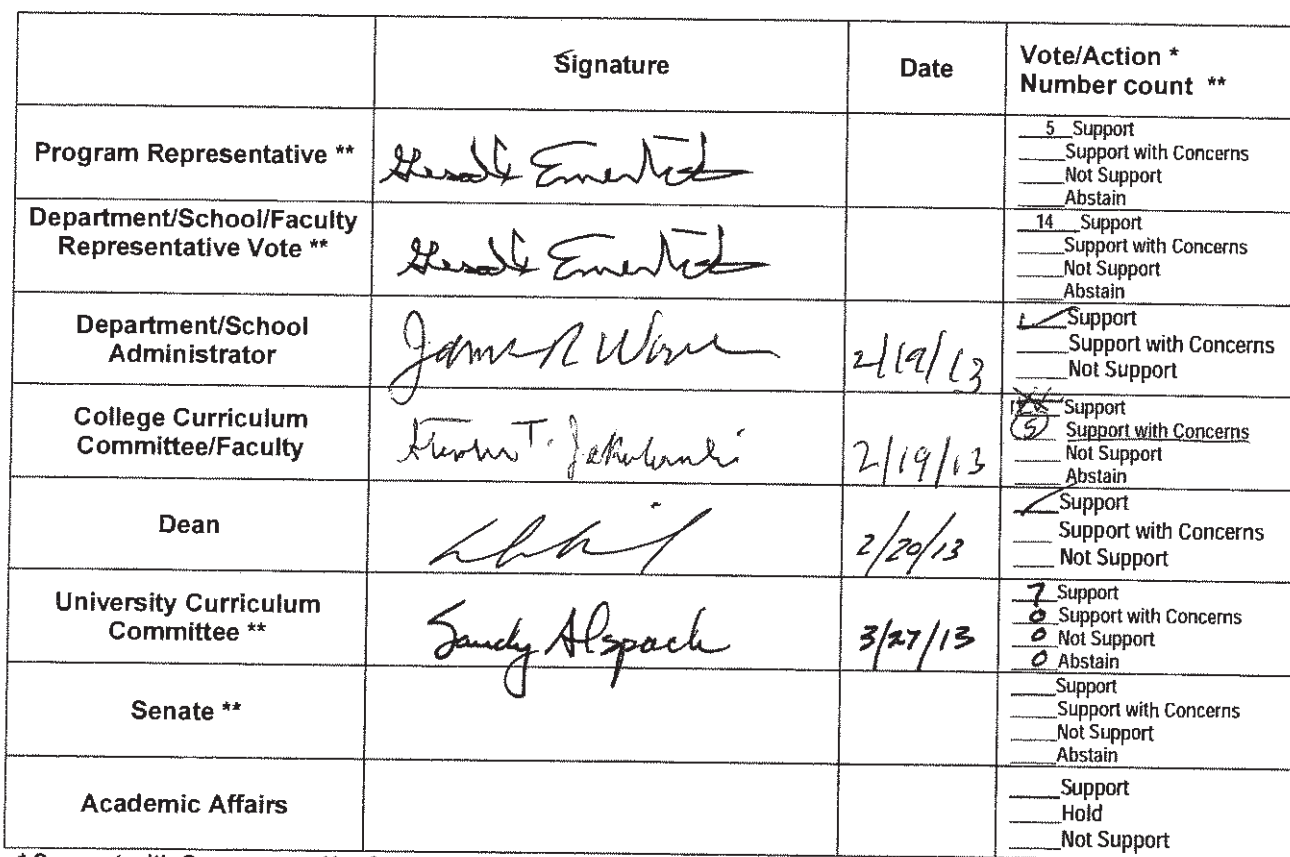 Signature
Date
Vote/Action *
Number count **
Program Representative **
5 Support
Support with Concerns
Not Support
Abstain
Department/School/Faculty
Representative Vote **
14 Support
Support with Concerns
Not Support
Abstain
Department/School
Administrator
2/19/13
✓ Support
Support with Concerns
Not Support
College Curriculum
Committee/Faculty
T.
2/19/13
Support
5 Support with Concerns
Not Support
Abstain
Dean
2/20/13
✓ Support
Support with Concerns
Not Support
University Curriculum
Committee **
Sandy Alspach
3/27/13
7 Support
0 Support with Concerns
0 Not Support
0 Abstain
Senate **
Support
Support with Concerns
Not Support
Abstain
Academic Affairs
Support
Hold
Not Support